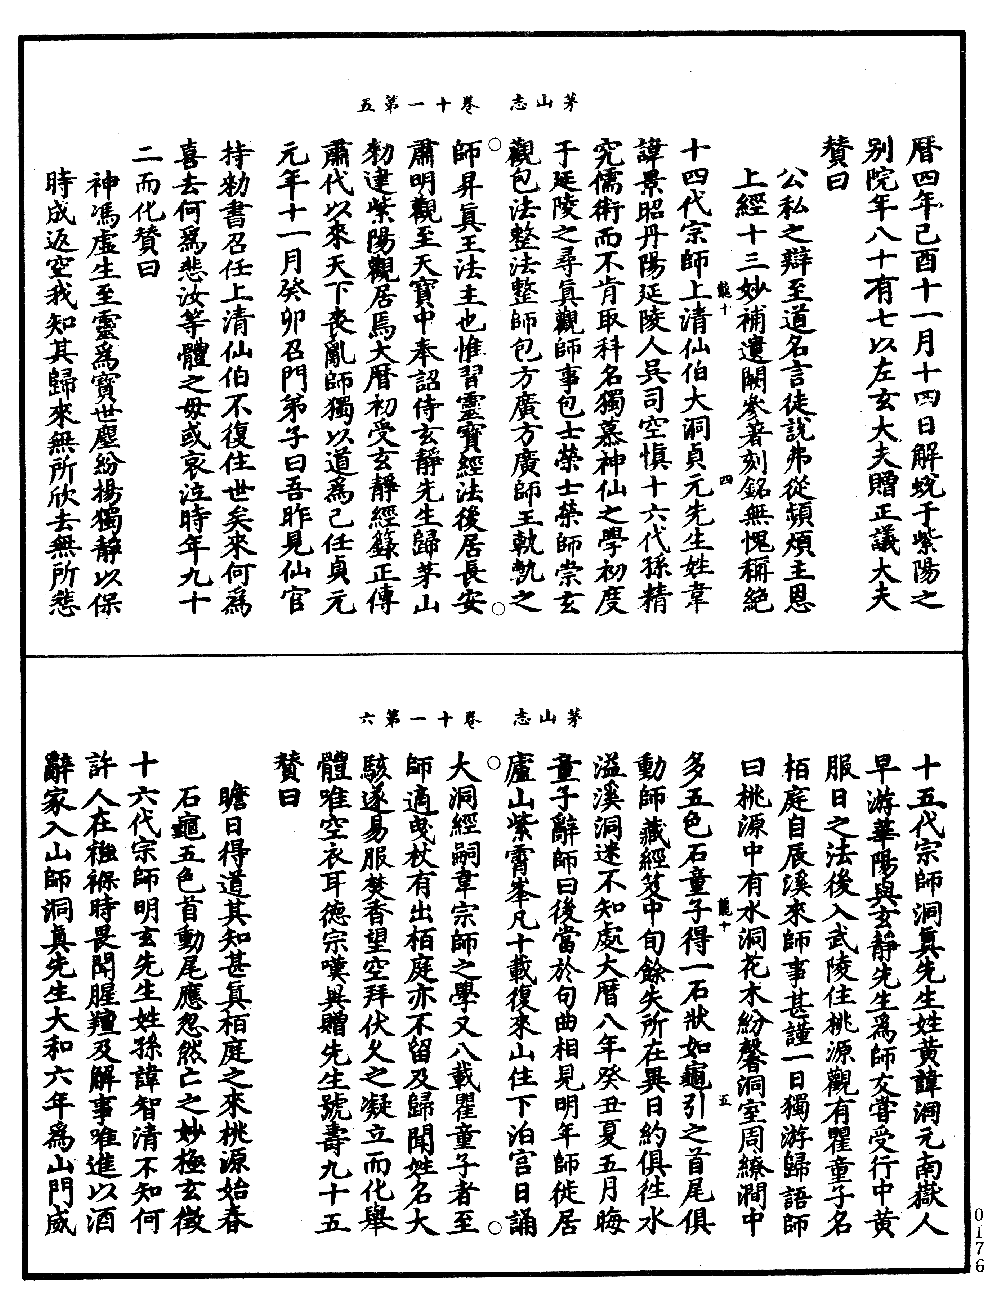 茅山志　卷十一第五
曆四年己酉十一月十四日解蛻于紫陽之
別院年八十有七以左玄大夫贈正議大夫
贊曰
公私之辯至道名言徒說弗從頻煩主恩
上經十三妙補遺闕參著刻銘無愧稱絕
龍十　四
十四代宗師上清仙伯大洞貞元先生姓韋
諱景昭丹陽延陵人吳司空慎十六代孫精
究儒術而不肯取科名獨慕神仙之學初度
于延陵之尋真觀師事包士榮士榮師崇玄
觀包法整法整師包方廣方廣師王軌軌之
師昇真王法主也惟習靈寶經法後居長安
肅明觀至天寶中奉詔侍玄靜先生歸茅山
勑建紫陽觀居焉大曆初受玄靜經籙正傳
肅代以來天下喪亂師獨以道為己任貞元
元年十一月癸卯召門弟子曰吾昨見仙官
持勑書召任上清仙伯不復住世矣來何為
喜去何為悲汝等體之毋或哀泣時年九十
二而化贊曰
神馮虛生至靈為寶世塵紛揚獨靜以保
時成返空我知其歸來無所欣去無所悲
茅山志　卷十一第六
十五代宗師洞真先生姓黃諱洞元南嶽人
早游華陽與玄靜先生為師友嘗受行中黃
服日之法後入武陵住桃源觀有瞿童子名
栢庭自辰溪來師事甚謹一日獨游歸語師
曰桃源中有水洞花木紛馨洞室周繚澗中
龍十　五
多五色石童子得一石狀如龜引之首尾俱
動師藏經笈中旬餘失所在異日約俱徃水
溢溪洞迷不知處大曆八年癸丑夏五月晦
童子辭師曰後當於句曲相見明年師徙居
廬山紫霄峯凡十載復來山住下泊宮日誦
大洞經嗣韋宗師之學又八載瞿童子者至
師適曳杖有出栢庭亦不留及歸聞姓名大
駭遂易服焚香望空拜伏久之凝立而化舉
體唯空衣耳德宗嘆異贈先生號壽九十五
贊曰
瞻日得道其知甚真栢庭之來桃源始春
石龜五色首動尾應忽然亡之妙極玄徵
十六代宗師明玄先生姓孫諱智清不知何
許人在襁褓時畏聞腥羶及解事唯進以酒
辭家入山師洞真先生大和六年為山門威
0176